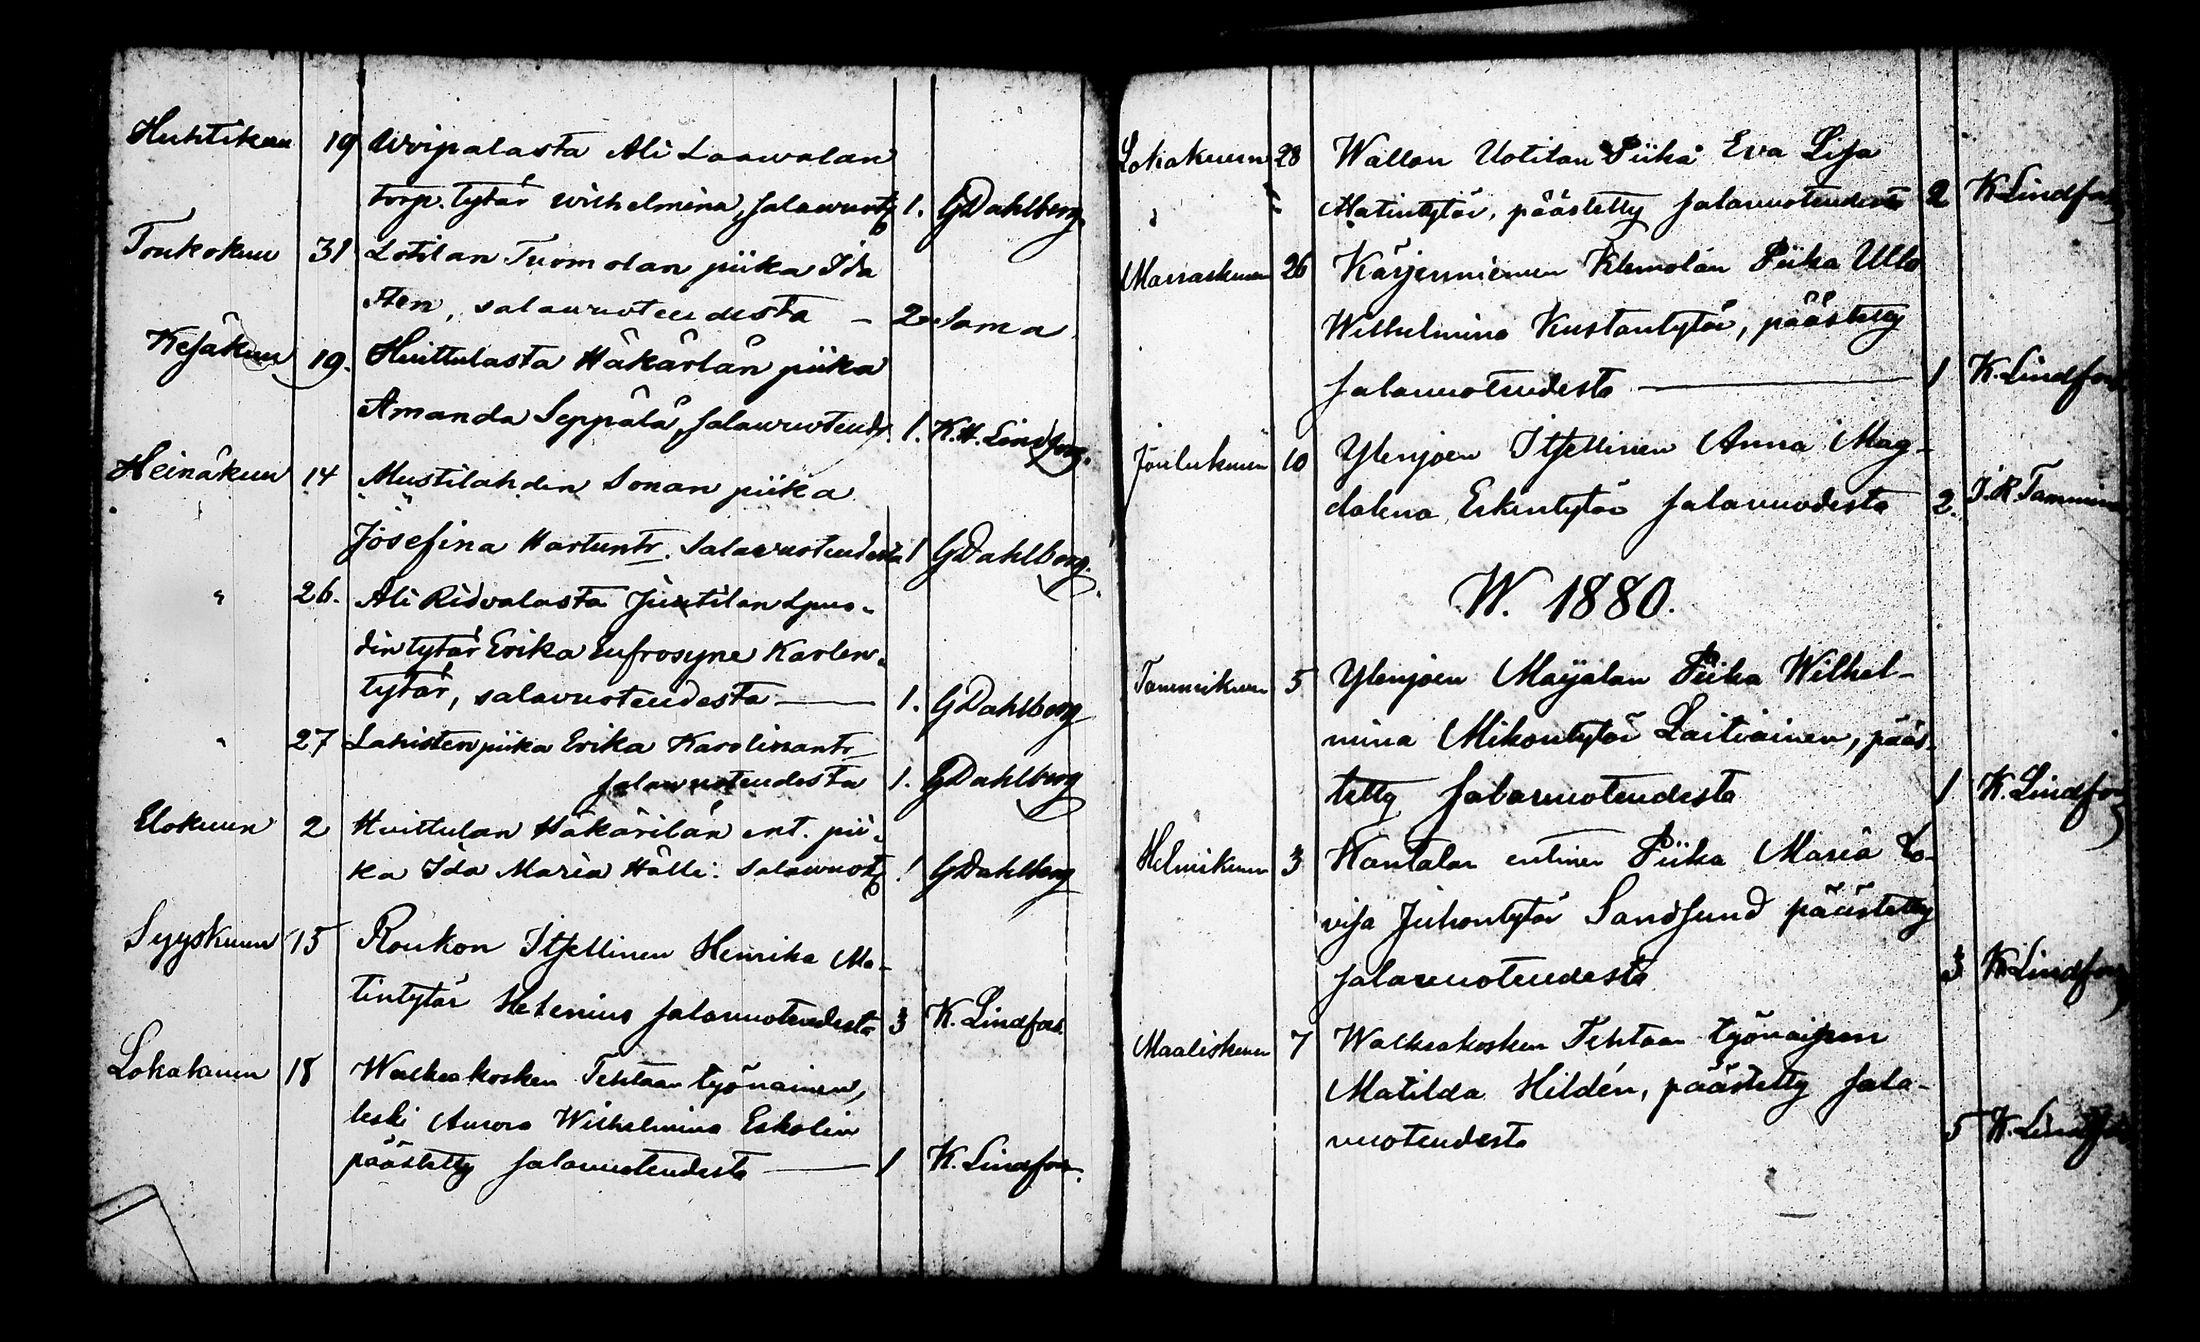 Huhtikuu 19 Uvipalasta Ali Laawalan
torp. tytär Wilhelmina, salawuot. 1. GDahlberg.
Toukokuu 31 Lotilan Tuomolan piika Ida
Sten, salavuoteudesta — 2 Sama
Kesäkuu 19. Huittulasta Häkärlän piika
Amanda Seppälä, salavuoteud. 1. K.H. Lindfors.
Heinäkuu 14 Mustilahden Sonan piika
Josefina Hartuntr. Salavuoteudesta 1 GDahlberg.
" 26. Ali Ridvalasta Juutilan Spuo-
din tytär Erika Eufrosyne Karlen-
tytär, salavuoteudesta — 1. GDahlberg
" 27 Lahisten piika Erika Karolinantr
salavuoteudesta 1. GDahlberg
Elokuun 2 Huittulan Häkärilän ent. pii-
ka Ida Maria Hälli. Salawuot. 1 GDahlberg
Syyskuun 15 Roukon Itsellinen Henrika Ma-
tintytär Helenius salavuoteudesta 3 K. Lindfors
Lokakuun 18 Walkeakosken Tehtaan työnainen,
leski Aurora Wilhelmina Eskolin
päästetty salavuoteudesta — 1 K. Lindfors.
Lokakuun 28 Wallon Uotilan Piika Eva Lisa
Matintytär, päästetty salavuoteudesta 2 K Lindfors
Marraskuun 26 Kärjenniemen Klemolan Piika Ulla
Wilhelmina Kustantytär, päästetty
salavuoteudesta — 1 K. Lindfors
Joulukuun 10 Ylenjoen Itsellinen Anna Mag-
dalena Erkintytär salavuodesta 2. J. R. Tamminen
W. 1880.
Tammikuun 5 Ylenjoen Maijalan Piika Wilhel-
mina Mikontytär Laitiainen, pääs-
tetty salavuoteudesta 1 K. Lindfors
Helmikuun 3 Kantalan entinen Piika Maria Lo-
visa Juhontytär Sandlund päästetty
salavuoteudesta 3 K Lindfors
Maaliskuun 7 Walkeakosken Tehtaan työnaisen
Matilda Hildén, päästetty sala-
vuoteudesta 5 K. Lindfors